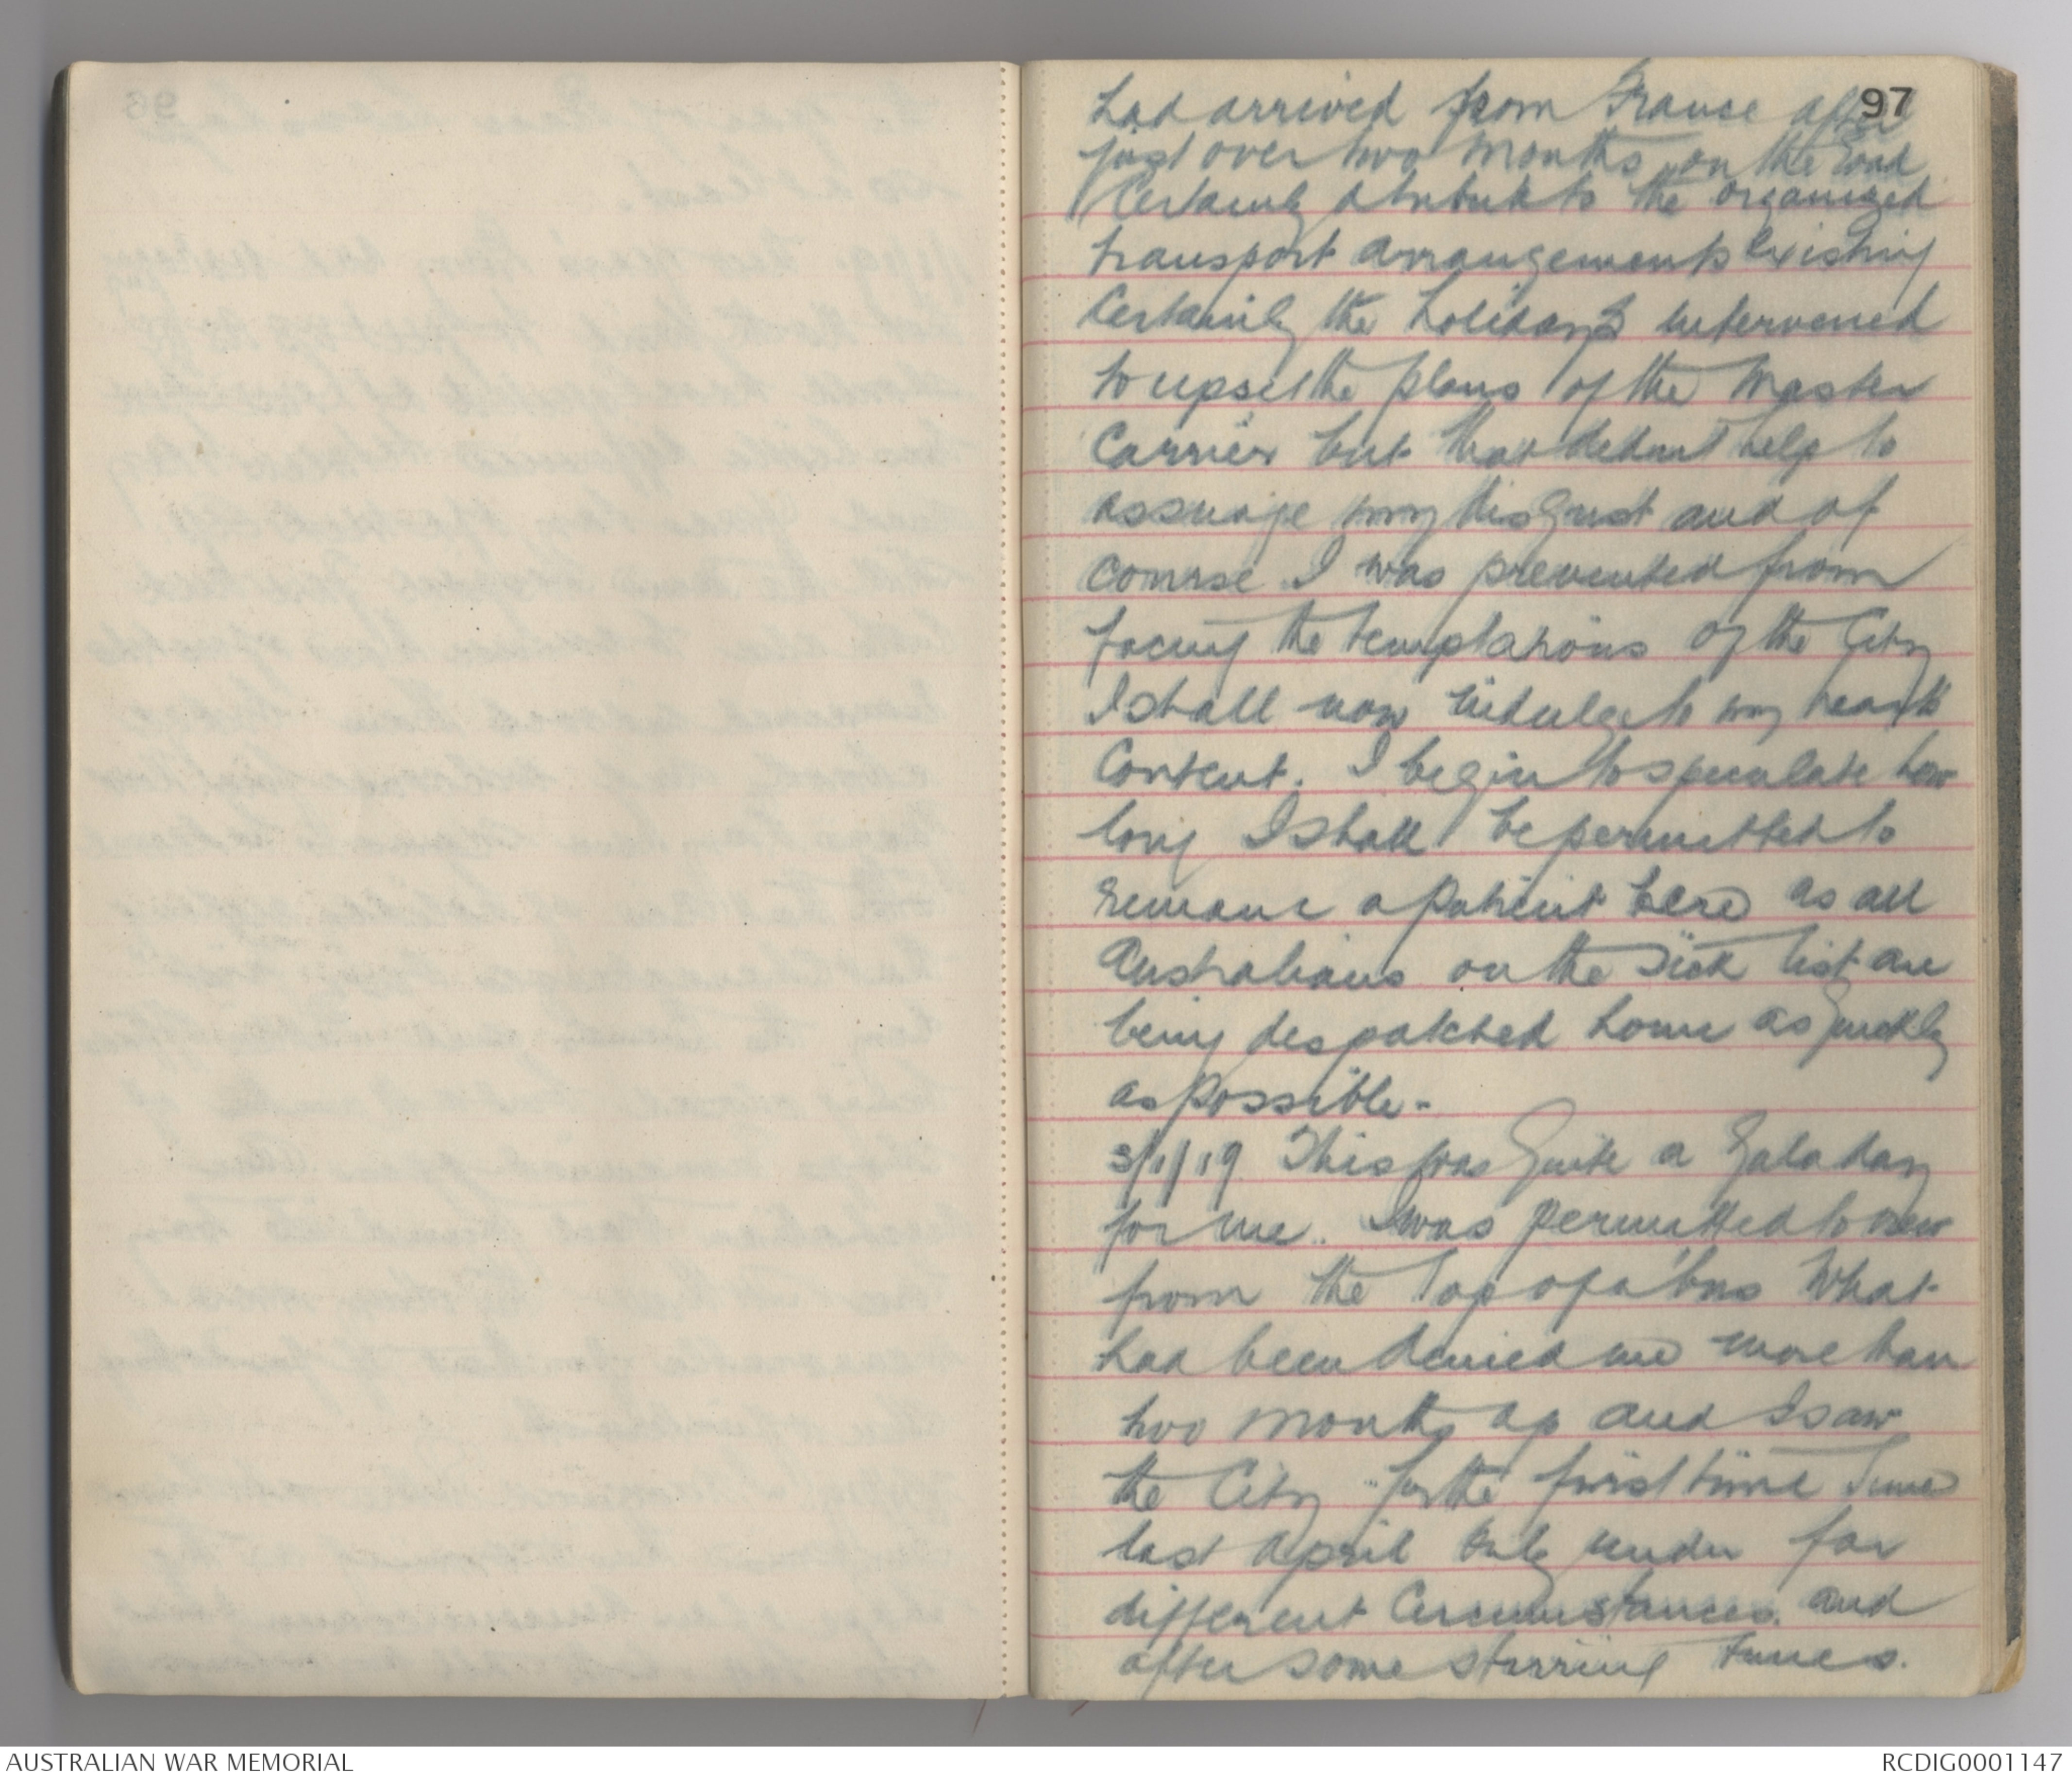 97
had arrived from France after
just over two months on the road
Certainly a tribute to the organized
transport arrangements existing
Certainly the holidays intervened
to upset the plans of the Master
Carrier but that didnt help to
assuage my disgust and of
course I was prevented from
facing the temptations of the City
I shall now indulge to my heart's
content. I begin to speculate how
long I shall be permitted to
remain a patient here as all
Australians on the sick list are
being despatched home as quickly
as possible.
3/1/19 This was quite a Gala day
for me. I was permitted to view
from the top of a bus What
had been denied me more than
two months ago and I saw
the City for the first time since
last April only under far
different Circumstances. and
after some stirring times.
AUSTRALIAN WAR MEMORIAL
RCDIG0001147